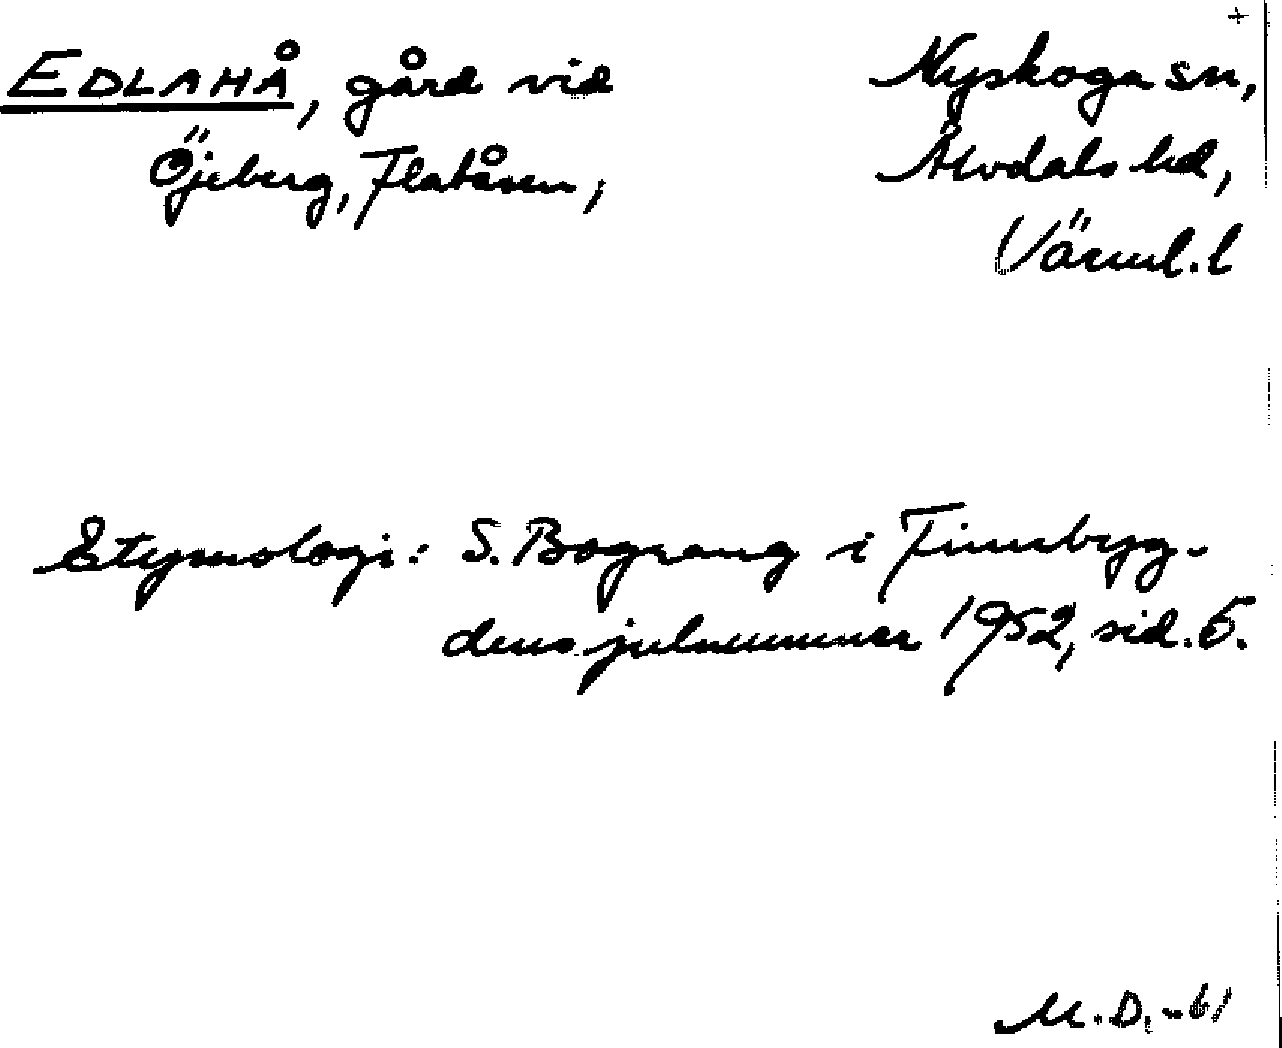 +
EDLAHÅ, gård vid
Öjeberg, Flatåsen,
Nyskoga sn,
Älvdals hd,
Värml. l
Etymologi: S. Bograng i Finnbyg-
dens julnummer 1952, sid. 5.
M. D. -61